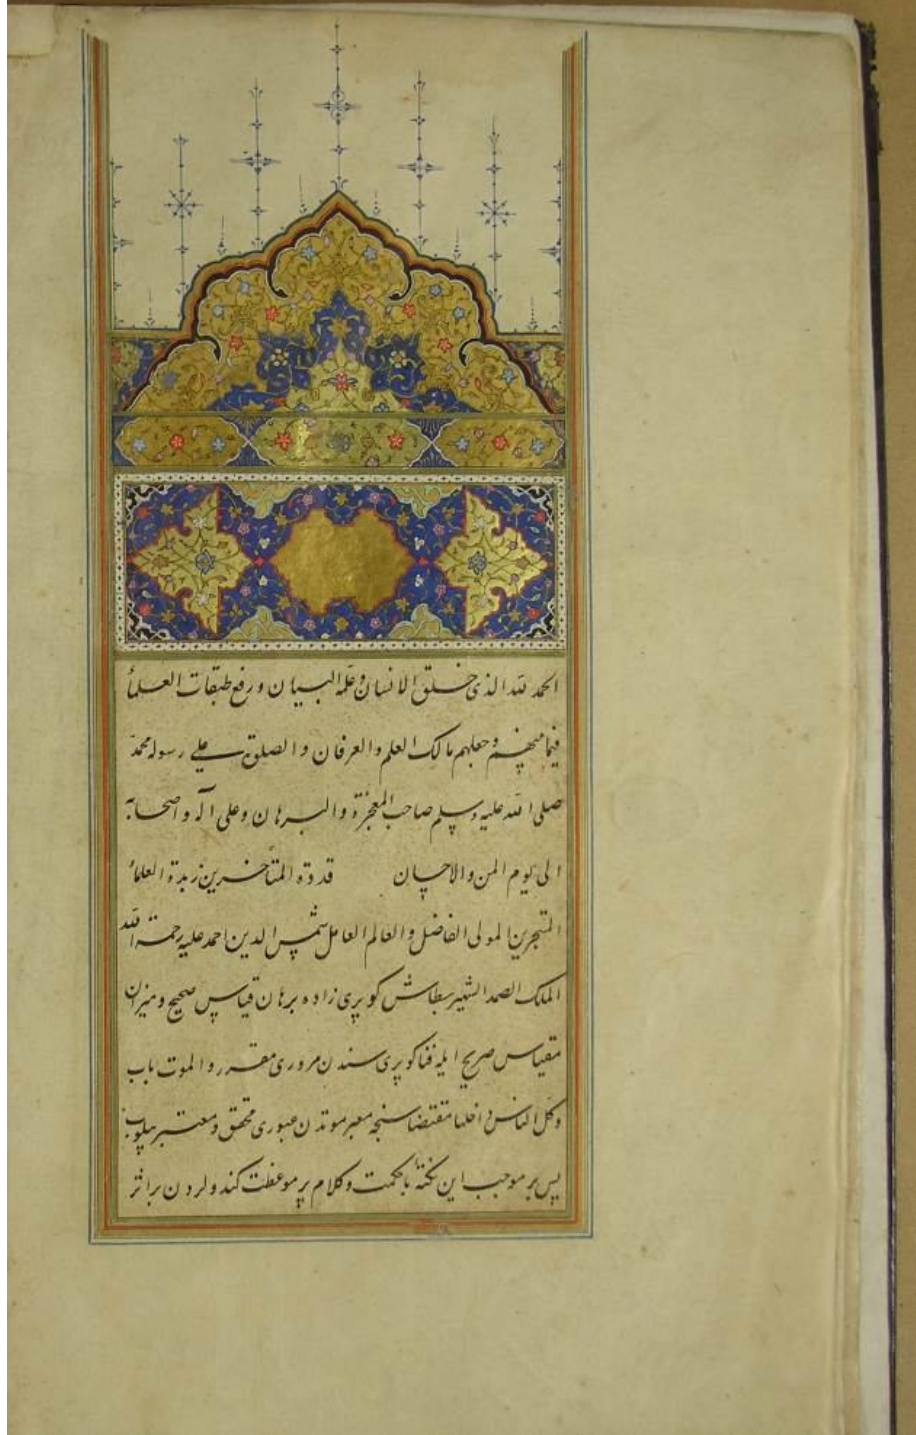 الحمد لله الذی خلق الانسان وعلمه البیان و رفع طبقات العلمأ
فیما بینهم وجعلهم مالک العلم والعرفان والصلوة علی رسوله محمد
صلی الله علیه وسلم صاحب المعجزة والبرهان وعلی آله واصحابه
الی یوم المن والاحسان قدوة المتأخرین زبدة العلمأ
المتبحرین المولی الفاضل والعالم العامل شمس الدین احمد علیه رحمة الله
الملک الصمد الشهیر بطاش کوپری زاده برهان قیاس صحیح ومیزان
مقیاس صریح ایله فنا کوپری سندن مروری مقرر والموت باب
وکل الناس داخلها مقتضاسنجه معبر موتدن عبوری محقق ومعتبر بیلوب
پس بر موجب این نکتهٔ باحکمت وکلام پر موعظت کندولردن بر اثر